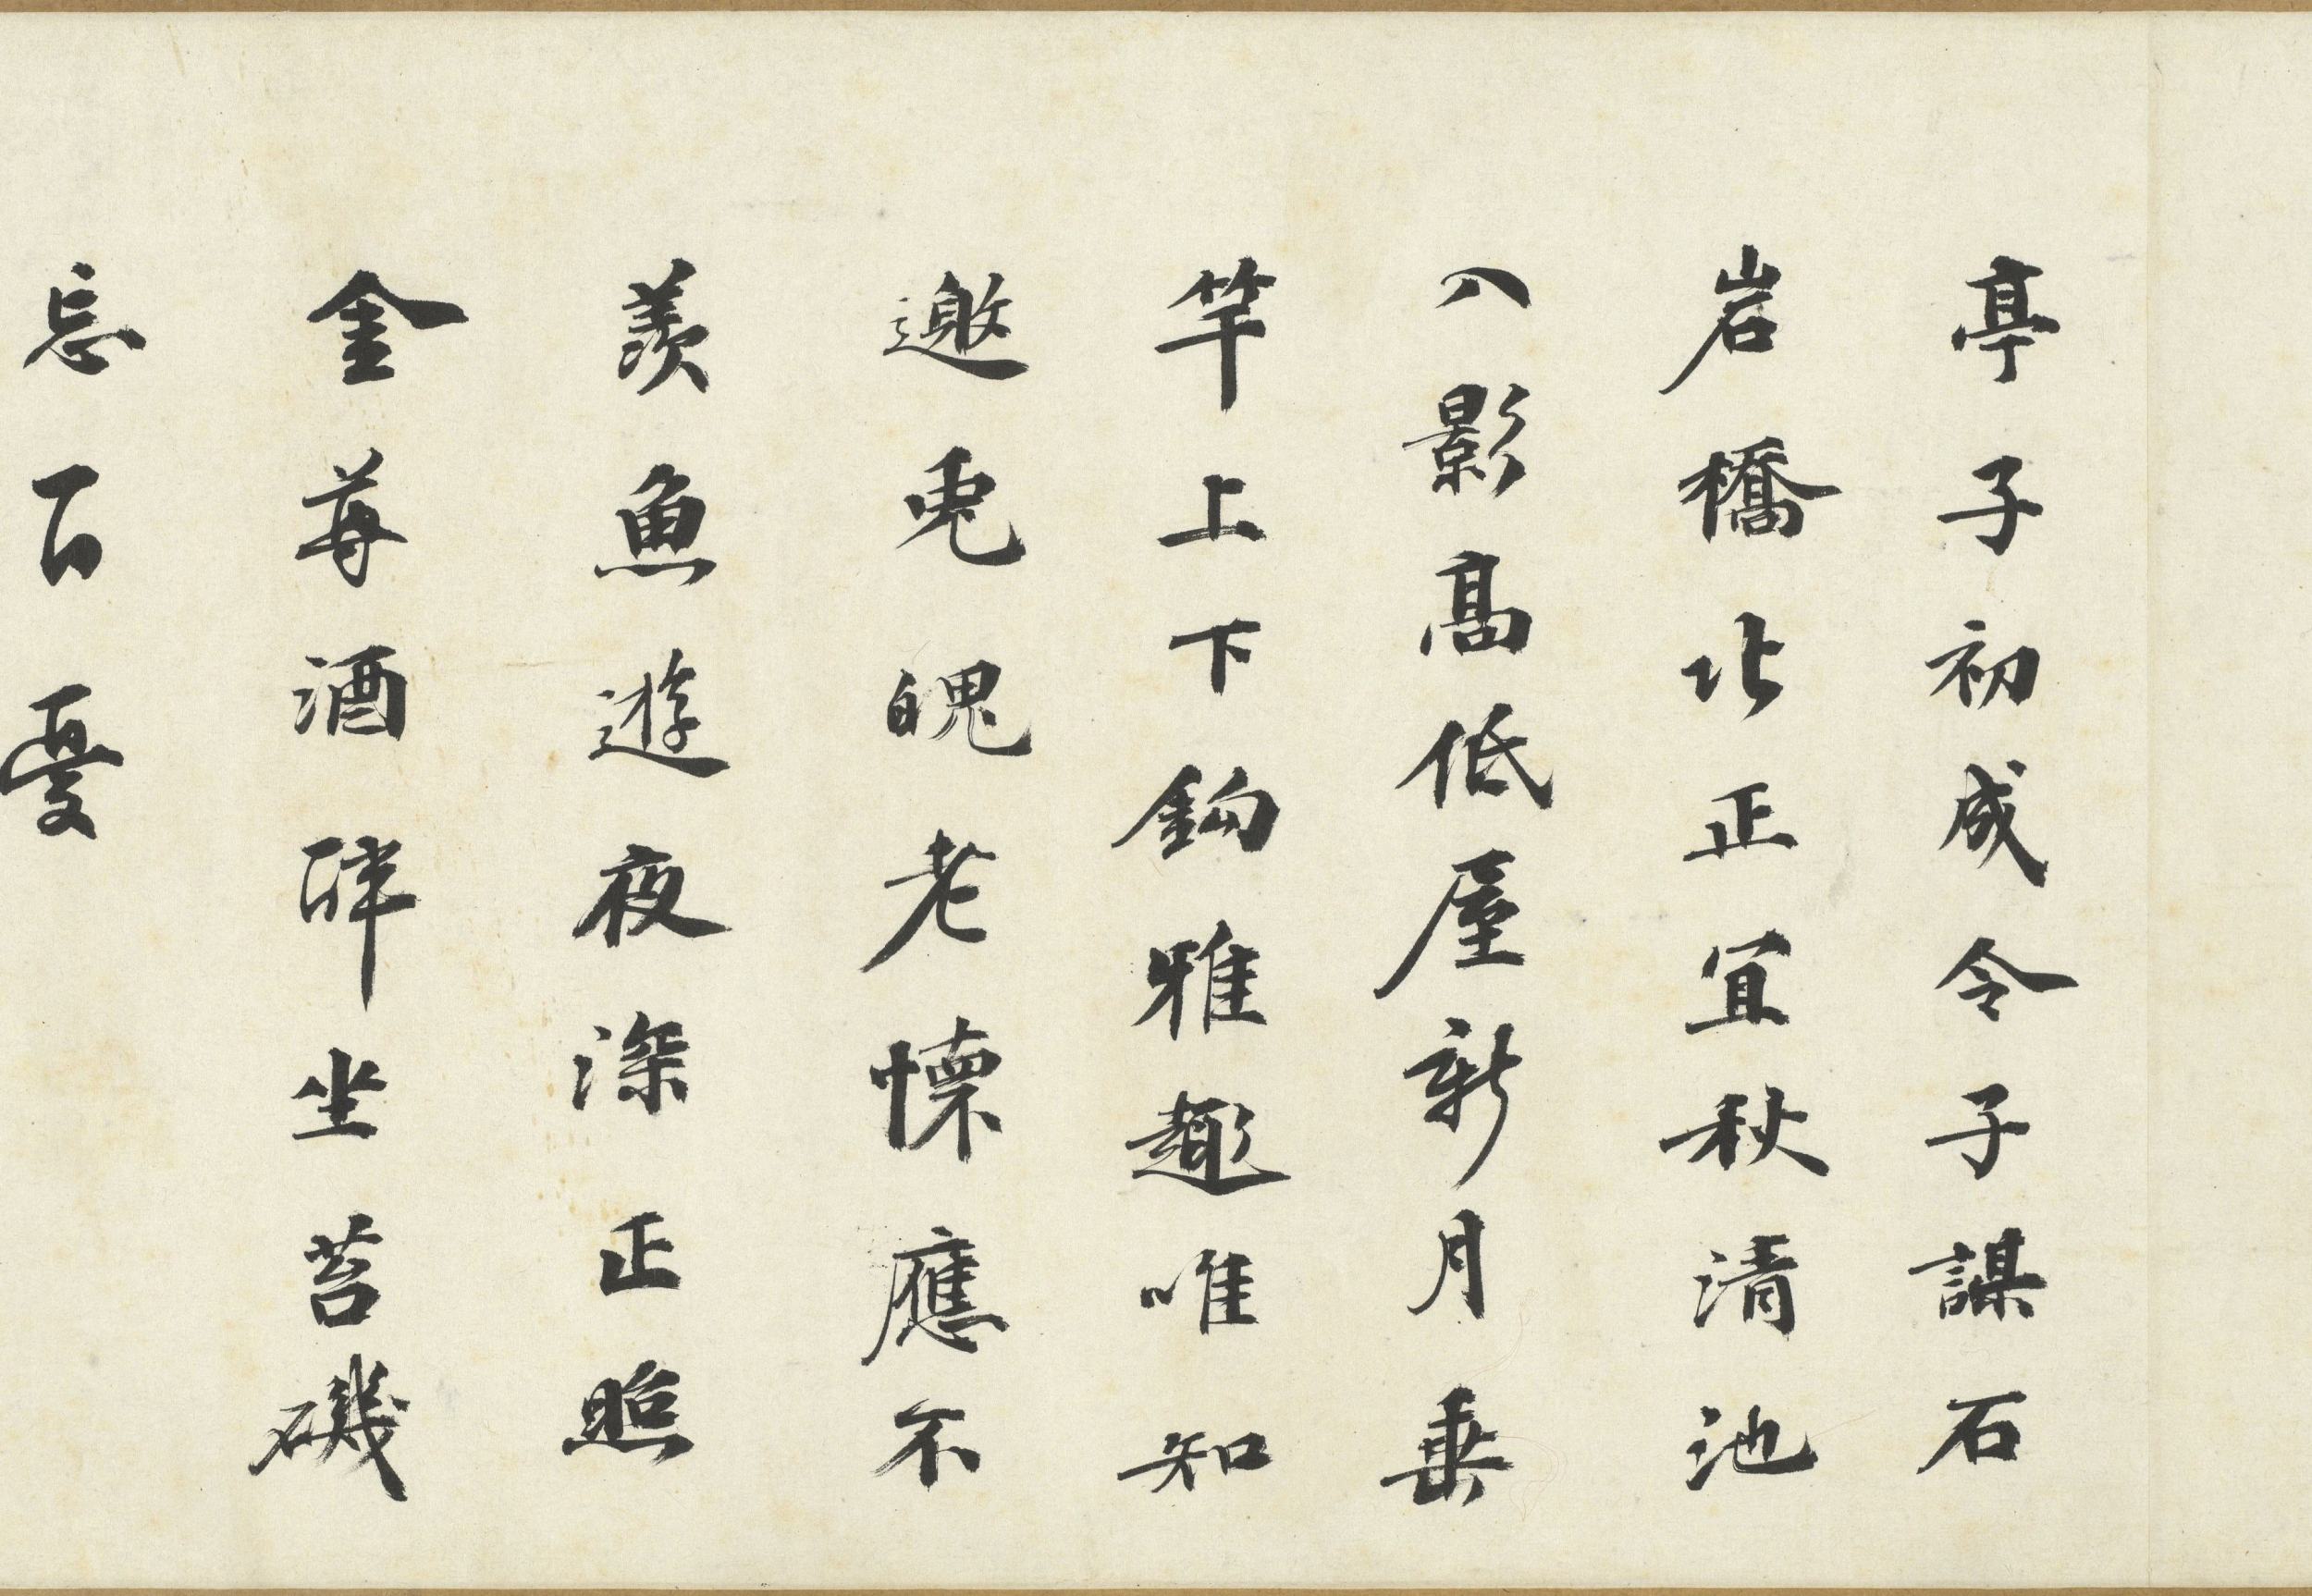 亭子初成令子謀石
岩橋北正宜秋清池
入影高低屋新月垂
竿上下鈎雅趣唯知
邀兎魄老懷應不
羨魚遊夜深正照
金尊酒醉坐苔磯
忘百憂